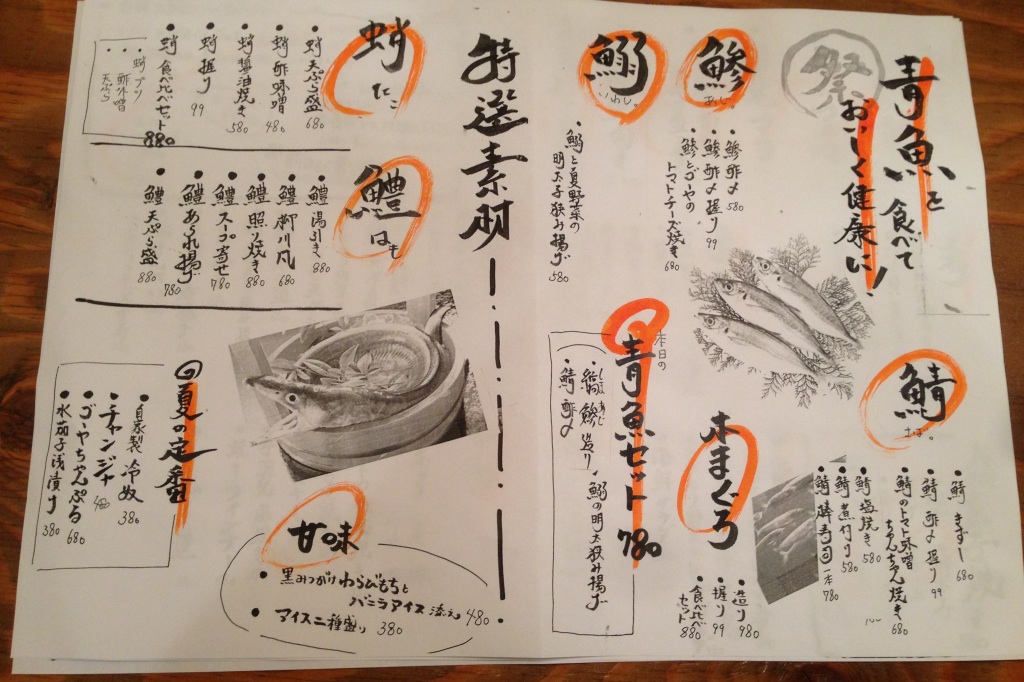 青魚を食べて
おいしく健康に！
祭
鯖
さば。
鯖きずし 680
鯖酢〆握り 99
鯖のトマト味噌
ちゃんちゃん焼き 680
鯖塩焼き 580
鯖煮付け 580
鯖棒寿司 一本 780
鯵
あじ。
鯵酢〆 580
鯵酢〆握り 99
鯵とゴーヤの
トマトチーズ焼き 680
本まぐろ
造り 980
握り 99
食べ比べ
セット 880
鰯
いわし。
鰯と夏野菜の
明太子挟み揚げ 580
本日の
青魚セット 780
鯵造り
鰯の明太挟み揚げ
鯖酢〆
特選素材
蛸
たこ
蛸天ぷら盛 680
蛸酢味噌 480
蛸醤油焼き 580
蛸握り 99
蛸食べ比べセット 880
蛸ブツ
酢味噌
天ぷら
鱧
はも
鱧湯引き 880
鱧柳川風 680
鱧照り焼き 880
鱧スープ寄せ 780
鱧あられ揚げ 780
鱧天ぷら盛 880
夏の定番
自家製冷奴 380
チャンジャ 480
ゴーヤちゃんぷる 680
水茄子浅漬け 380
甘味
黒みつがけわらびもちと
バニラアイス添え 480
アイス二種盛り 380